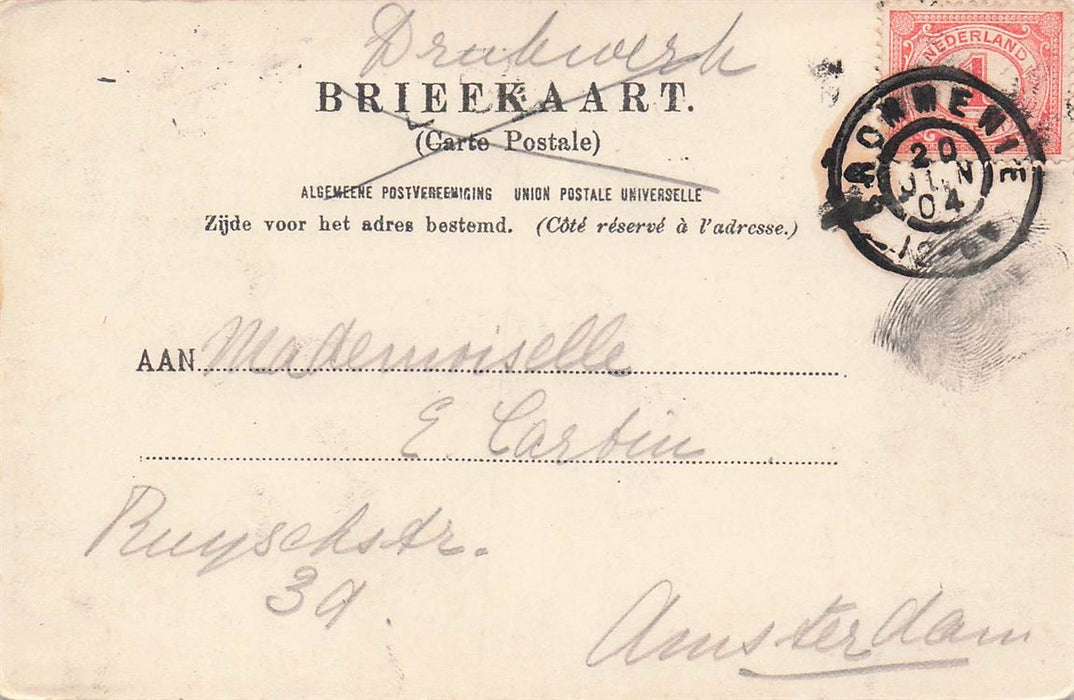 Drukwerk
BRIEFKAART.
(Carte Postale)
ALGEMEENE POSTVEREENIGING UNION POSTALE UNIVERSELLE
Zijde voor het adres bestemd. (Côté réservé à l'adresse.)
NEDERLAND
1
KROMMENIE
20
JUN
04
AAN Mademoiselle
E. Carbin
Ruyschstr.
39.
Amsterdam